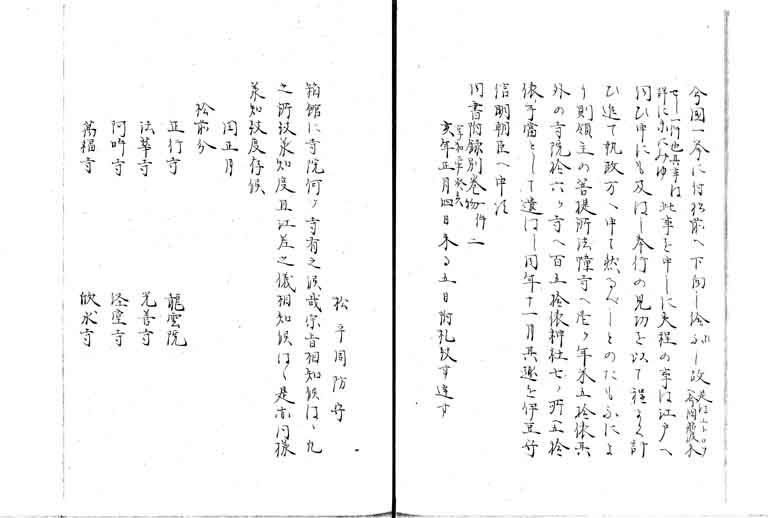 今國一条に付松前へ下向し給ふし故
てし一所也具事は
詳に赤にみゆ 此事を申しに夫程の事は江戸へ
伺ひ申にも及はし奉行の見切を以て程よく計
ひ追て執政方へ申て然るへしとのたもふによ
り則領主の菩提所法幢寺へ壱ヶ年米五拾俵其
外の寺院拾六ヶ寺へ百五拾俵神社七ヶ所へ五拾
俵手當として遣はし同年十一月其趣を伊豆守
信明朝臣へ申達
同書附録別巻物一件二
亥年正月四日来る五日附札致す達す
松平周防守
箱館に寺院何ヶ寺有之候哉宗旨相知候はゝ凡
之所致承知度且江差之儀相知候はゝ是亦同様
承知致度存候
同正月
松前分
正行寺 龍雲院
法華寺 光善寺
阿吽寺 経堂寺
萬福寺 欣求寺